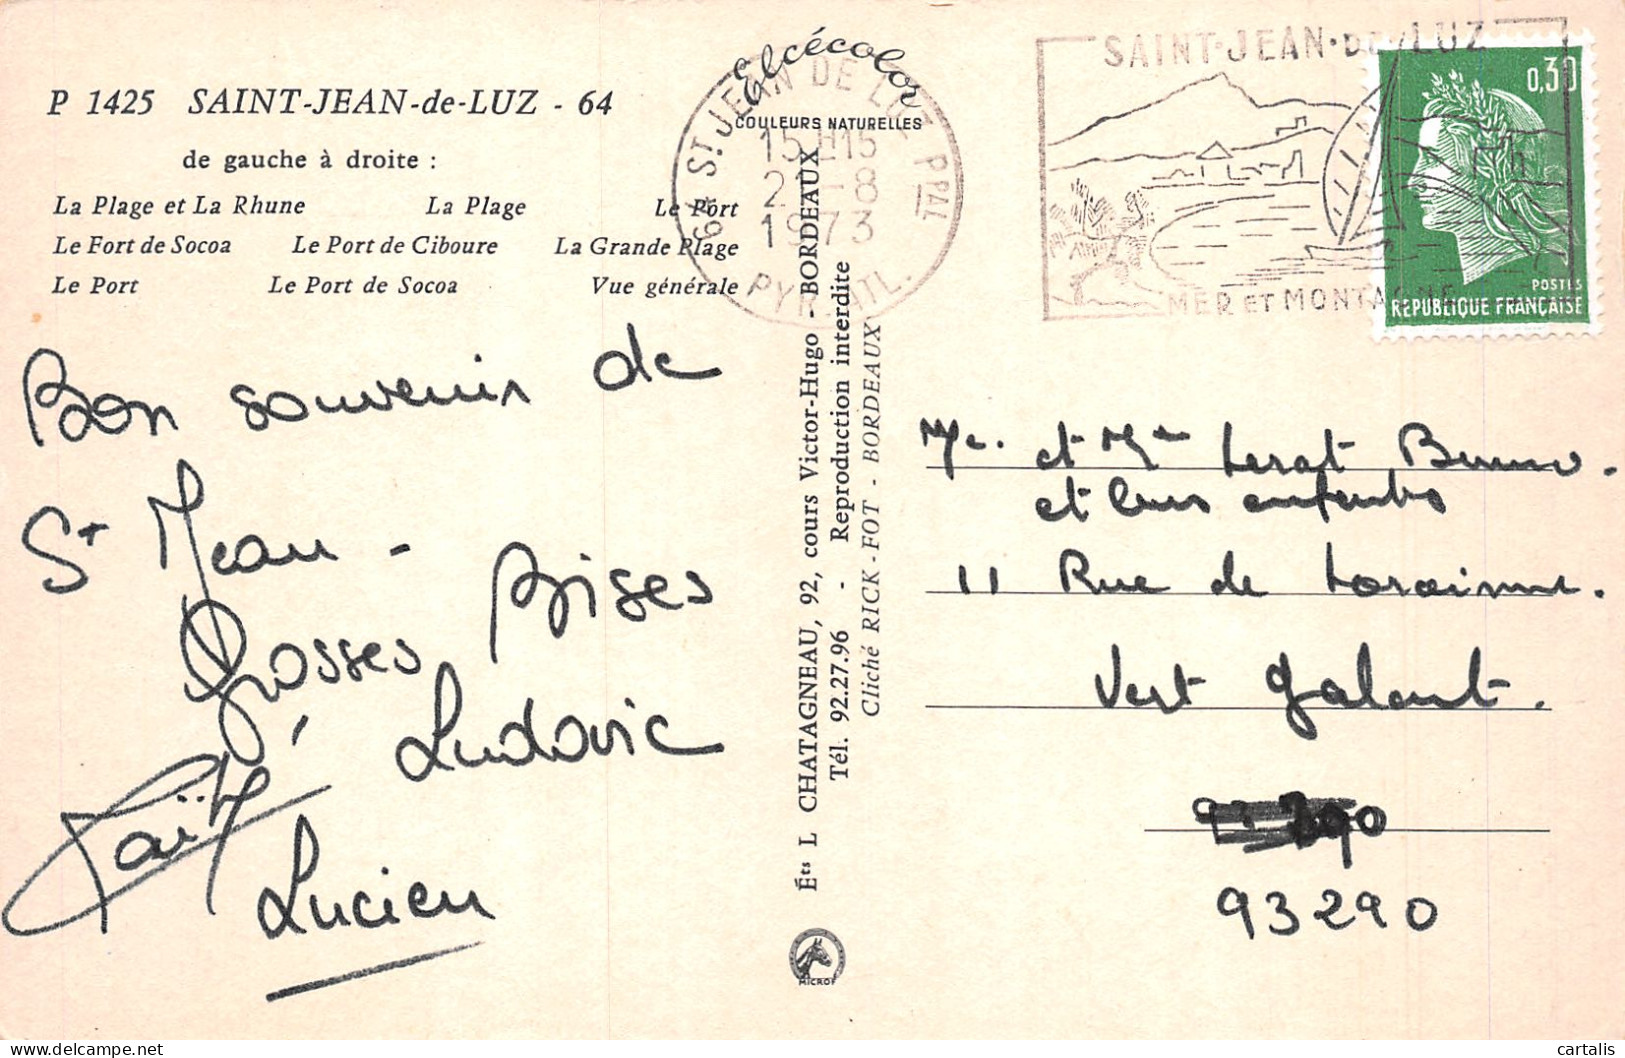 P 1425 SAINT-JEAN-de-LUZ - 64
de gauche à droite :
La Plage et La Rhune La Plage Le Port
Le Fort de Socoa Le Port de Ciboure La Grande Plage
Le Port Le Port de Socoa Vue générale
Elcécolor
COULEURS NATURELLES
64 ST JEAN DE LUZ PPAL
15H15
2 -8
1973
PYR. ATL.
SAINT-JEAN-DE-LUZ
MER ET MONTAGNE
0,30
POSTES
REPUBLIQUE FRANÇAISE
Bon souvenir de
St Jean -
Grosses Bises
Ludovic
Lucien
Éts L CHATAGNEAU, 92, cours Victor-Hugo - BORDEAUX
Tél. 92.27.96 - Reproduction interdite
Cliché RICK-FOT - BORDEAUX
MICROF
et Me Lerat Bruno.
et leurs enfants
11 Rue de Lorraine.
Vert Galant.
93290
cartalis